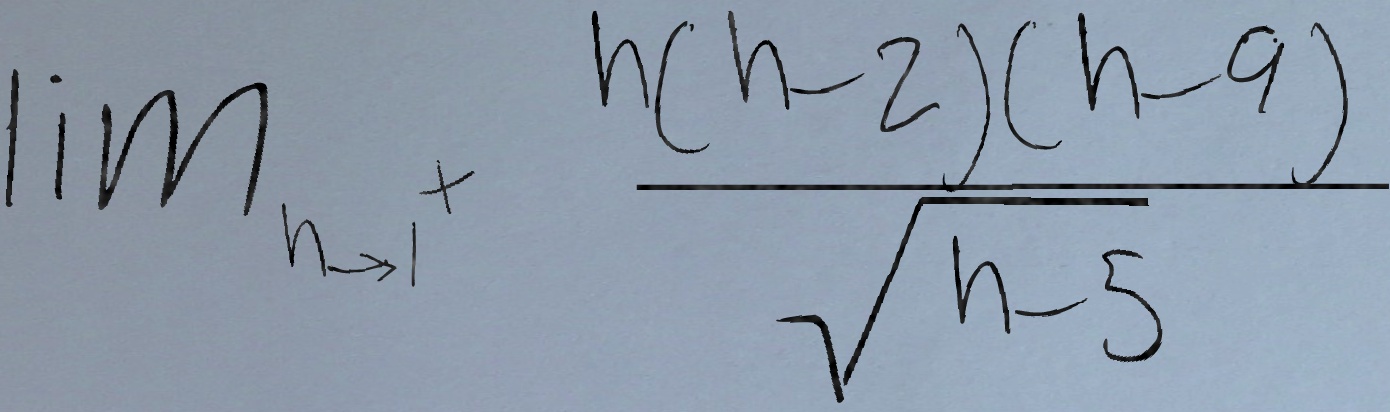 \lim_{h \to 1^+} \frac{h(h-2)(h-9)}{\sqrt{h-5}}